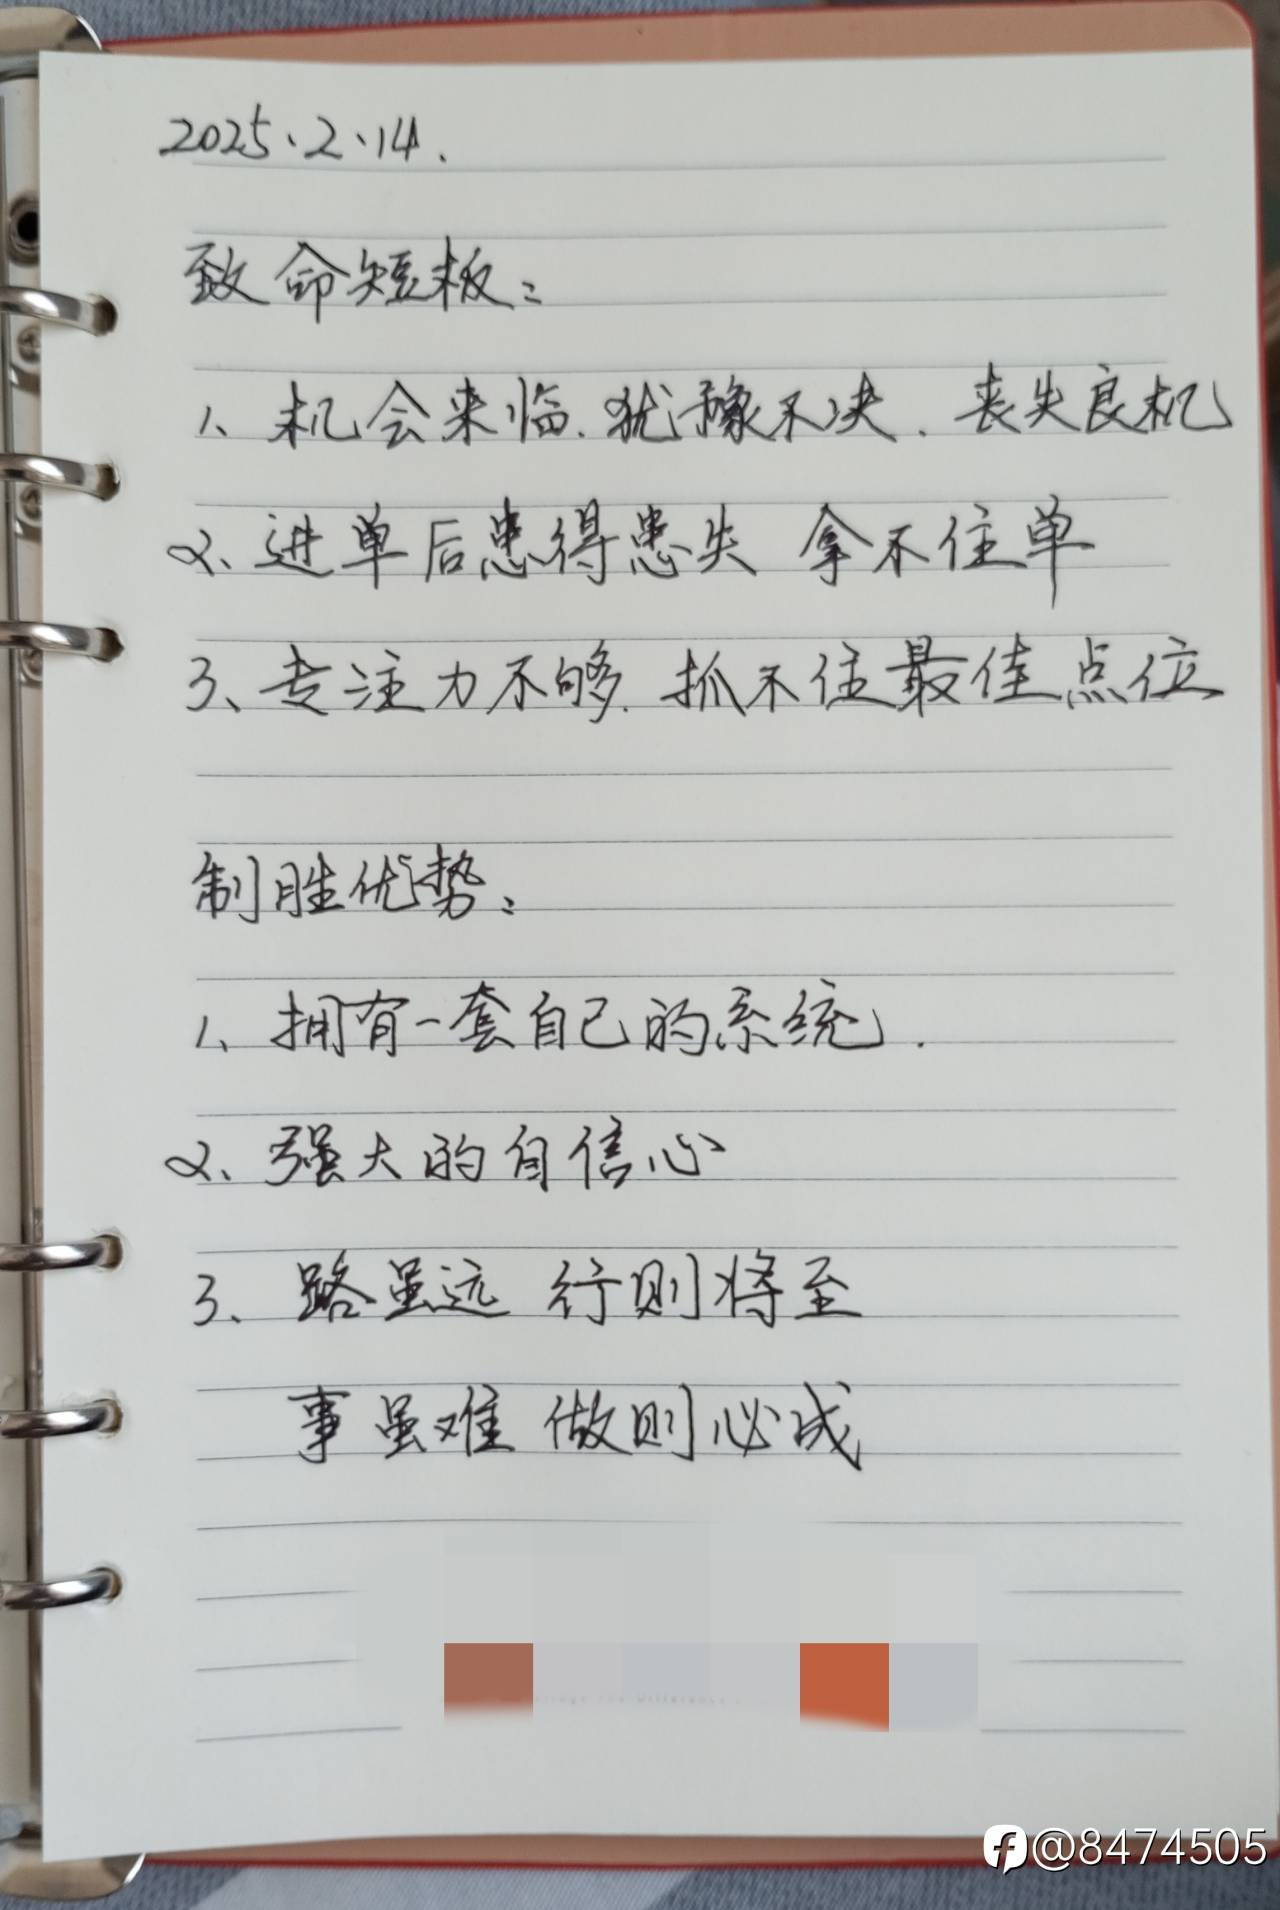 2025.2.14.
致命短板：
1、机会来临.犹豫不决.丧失良机
2、进单后患得患失 拿不住单
3、专注力不够.抓不住最佳点位
制胜优势：
1、拥有一套自己的系统.
2、强大的自信心
3、路虽远 行则将至
事虽难 做则必成
@8474505